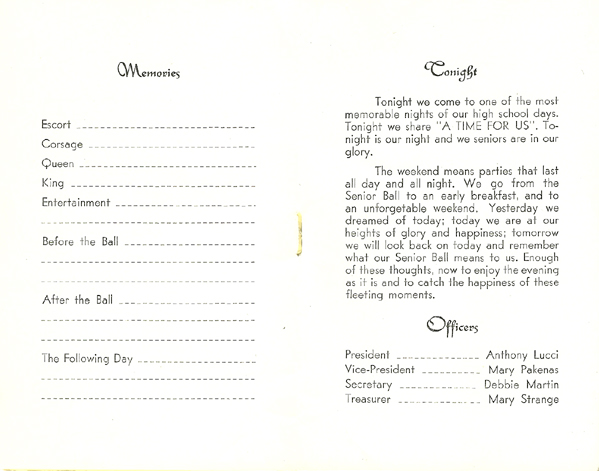 Memories
Escort
Corsage
Queen
King
Entertainment
Before the Ball
After the Ball
The Following Day
Tonight
Tonight we come to one of the most
memorable nights of our high school days.
Tonight we share "A TIME FOR US". To-
night is our night and we seniors are in our
glory.
The weekend means parties that last
all day and all night. We go from the
Senior Ball to an early breakfast, and to
an unforgetable weekend. Yesterday we
dreamed of today; today we are at our
heights of glory and happiness; tomorrow
we will look back on today and remember
what our Senior Ball means to us. Enough
of these thoughts, now to enjoy the evening
as it is and to catch the happiness of these
fleeting moments.
Officers
President Anthony Lucci
Vice-President Mary Pakenas
Secretary Debbie Martin
Treasurer Mary Strange